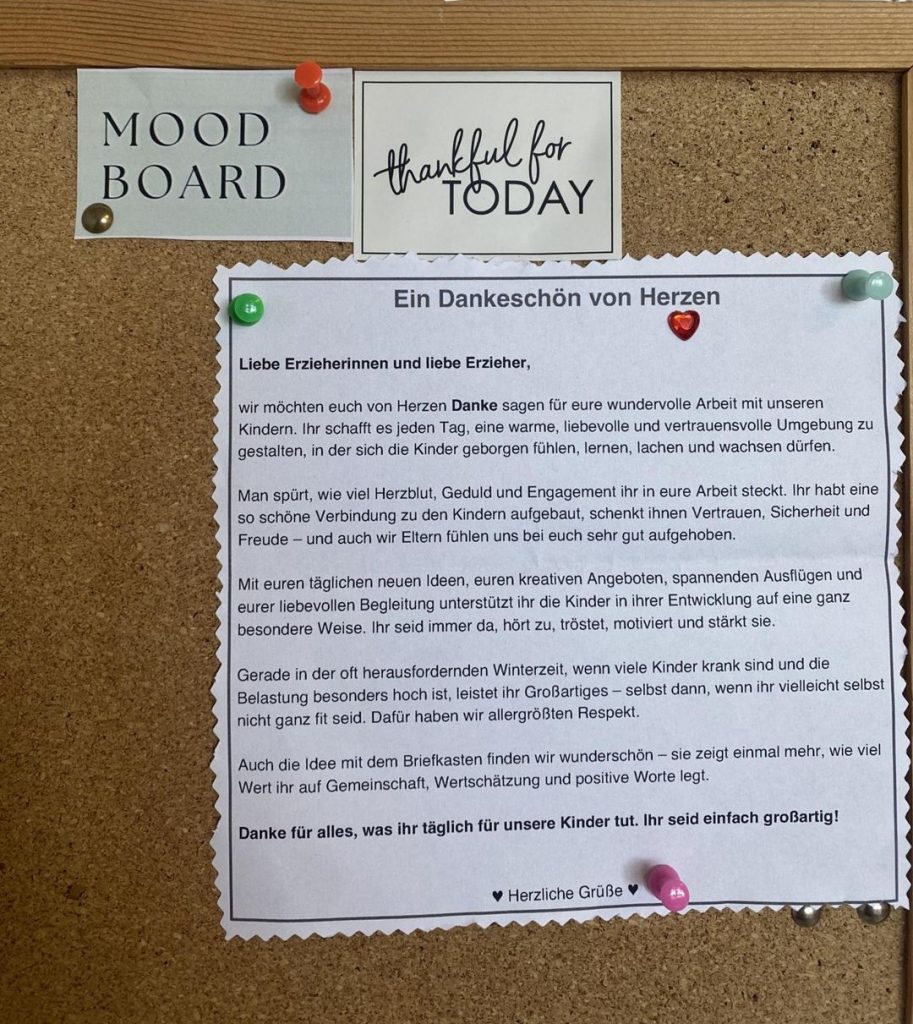 MOOD
BOARD
thankful for
TODAY
Ein Dankeschön von Herzen
Liebe Erzieherinnen und liebe Erzieher,
wir möchten euch von Herzen Danke sagen für eure wundervolle Arbeit mit unseren
Kindern. Ihr schafft es jeden Tag, eine warme, liebevolle und vertrauensvolle Umgebung zu
gestalten, in der sich die Kinder geborgen fühlen, lernen, lachen und wachsen dürfen.
Man spürt, wie viel Herzblut, Geduld und Engagement ihr in eure Arbeit steckt. Ihr habt eine
so schöne Verbindung zu den Kindern aufgebaut, schenkt ihnen Vertrauen, Sicherheit und
Freude – und auch wir Eltern fühlen uns bei euch sehr gut aufgehoben.
Mit euren täglichen neuen Ideen, euren kreativen Angeboten, spannenden Ausflügen und
eurer liebevollen Begleitung unterstützt ihr die Kinder in ihrer Entwicklung auf eine ganz
besondere Weise. Ihr seid immer da, hört zu, tröstet, motiviert und stärkt sie.
Gerade in der oft herausfordernden Winterzeit, wenn viele Kinder krank sind und die
Belastung besonders hoch ist, leistet ihr Großartiges – selbst dann, wenn ihr vielleicht selbst
nicht ganz fit seid. Dafür haben wir allergrößten Respekt.
Auch die Idee mit dem Briefkasten finden wir wunderschön – sie zeigt einmal mehr, wie viel
Wert ihr auf Gemeinschaft, Wertschätzung und positive Worte legt.
Danke für alles, was ihr täglich für unsere Kinder tut. Ihr seid einfach großartig!
♥ Herzliche Grüße ♥